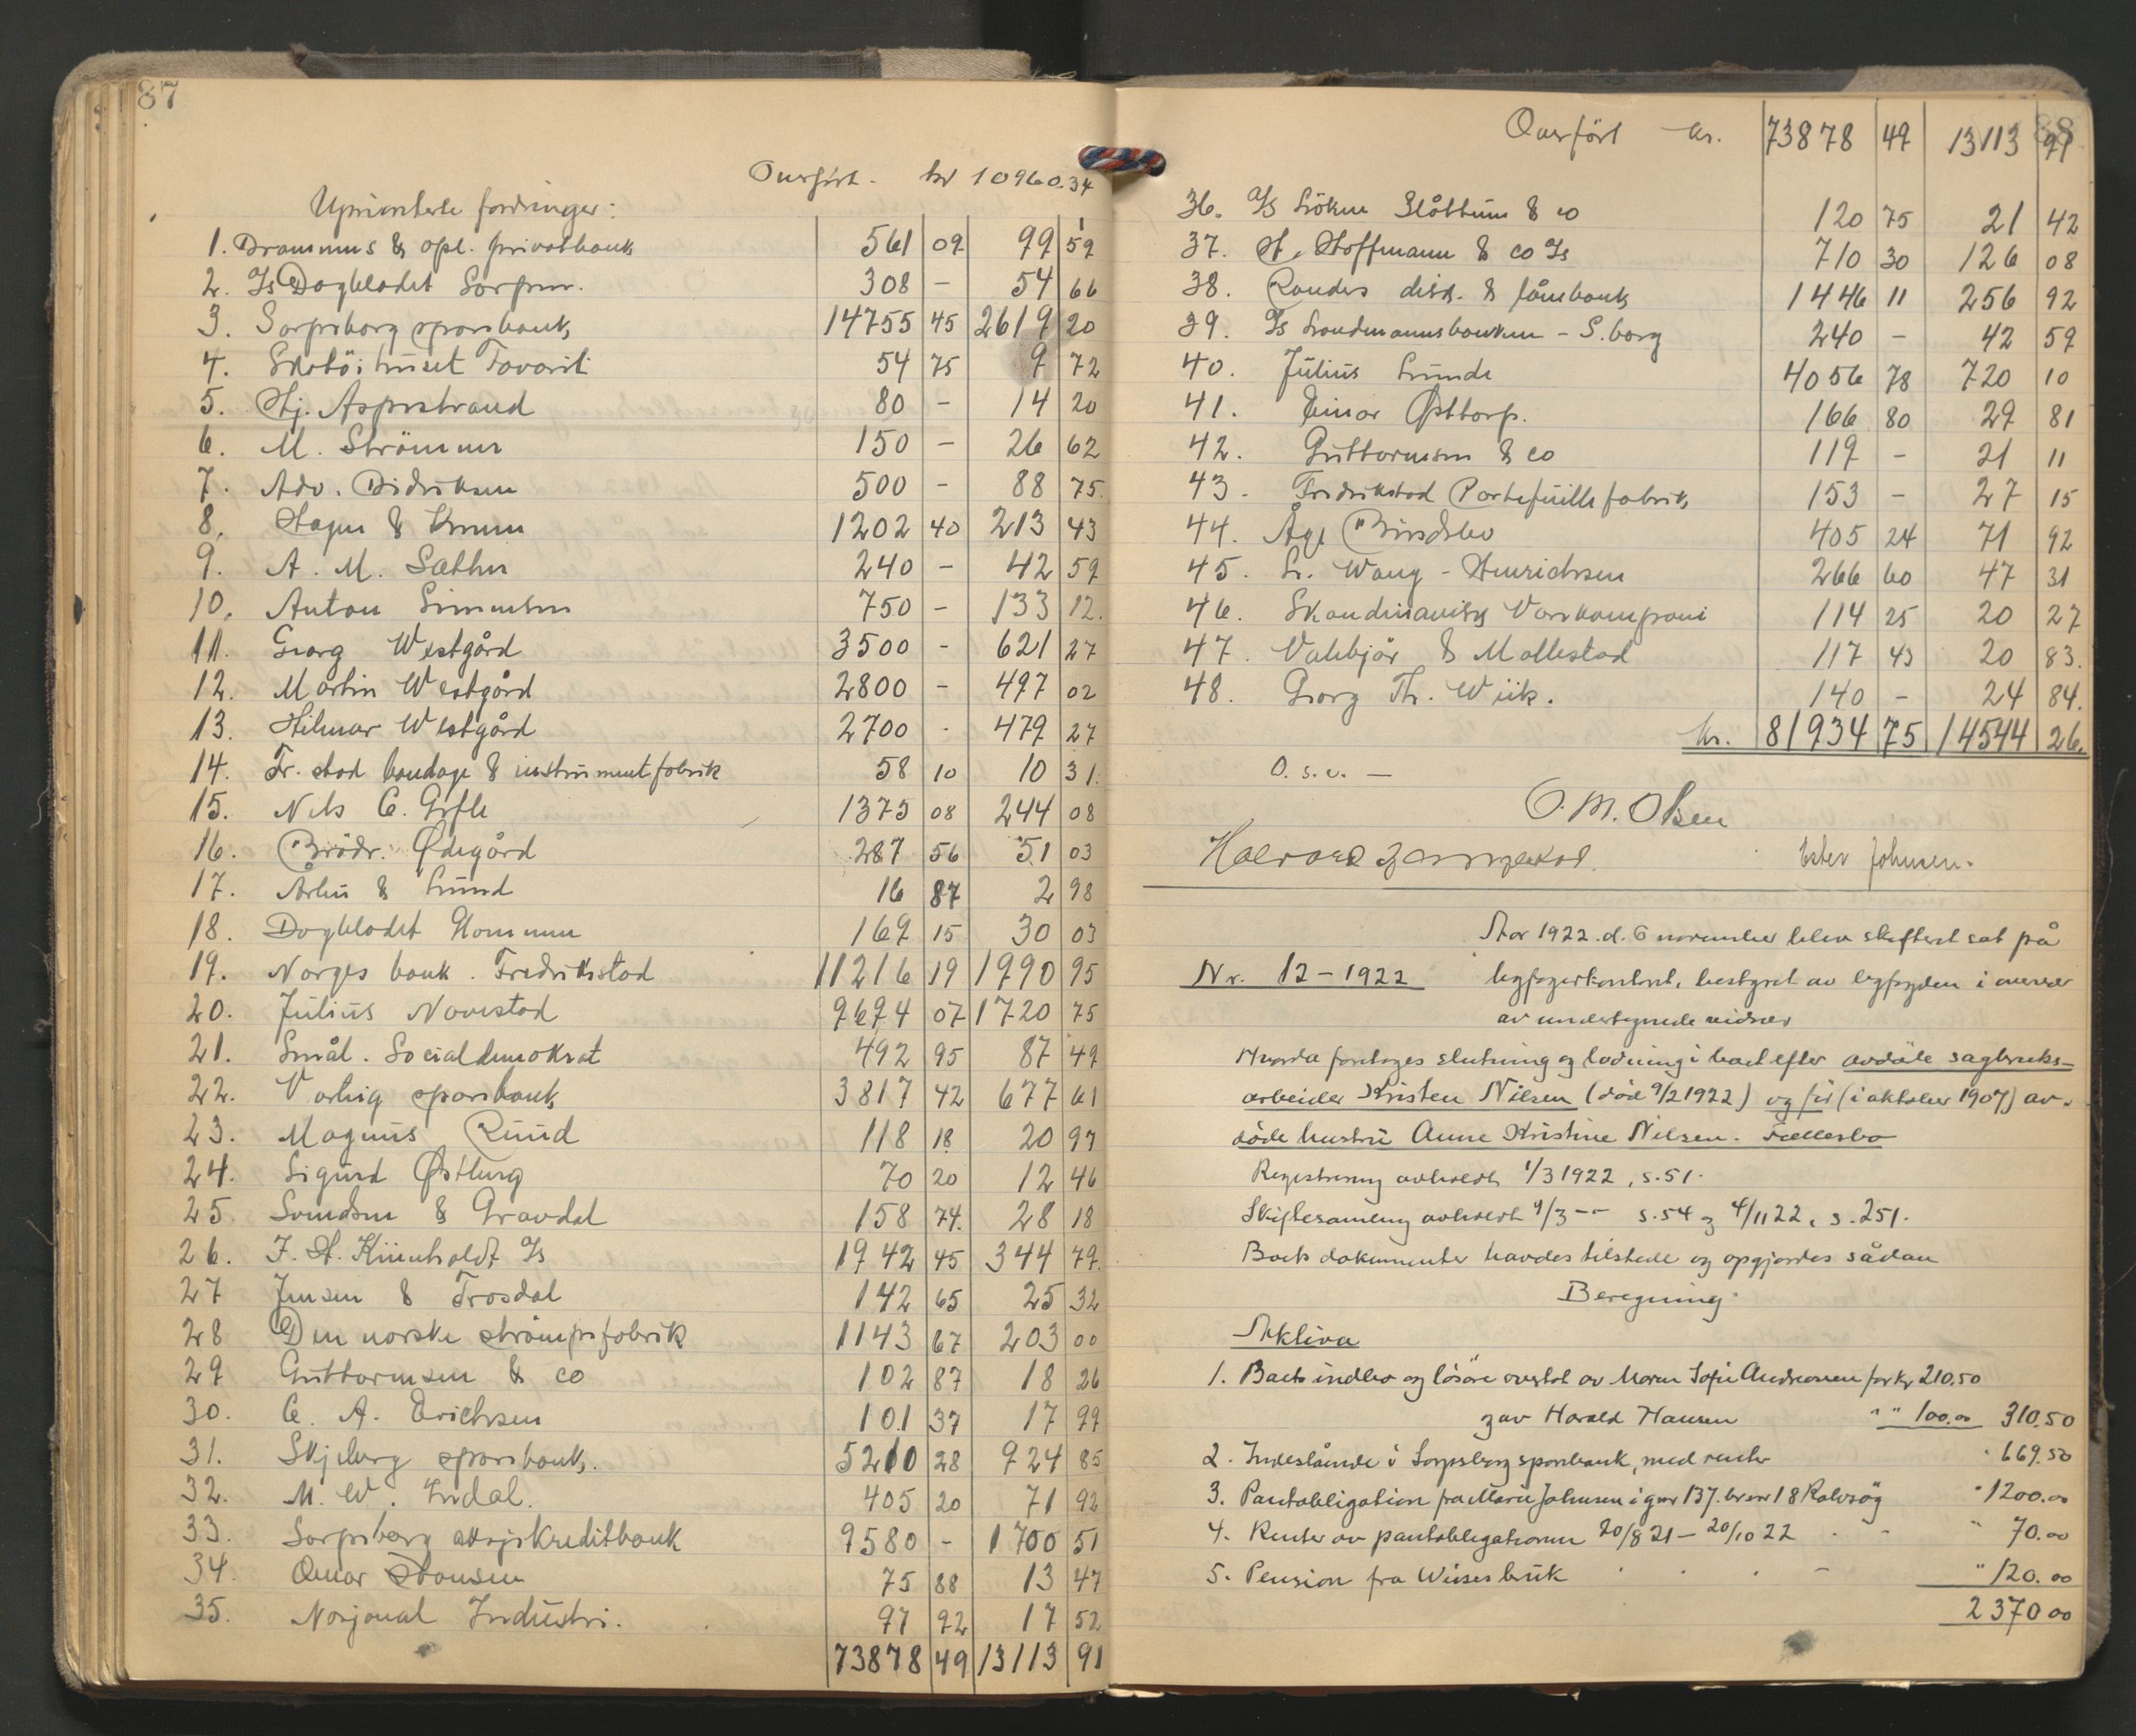 87
Overført. kr 10960.34
Upriorterte fordringer:
1. Drammens & opl. privatbank 561 09 99 59
2. A/s Dagbladet Sarpen. 308 – 54 66
3. Sarpsborg sparebank 14755 45 2619 20
4. Skotöihuset Favorit 54 75 9 72
5. Hj. Asperstrand 80 – 14 20
6. M. Strömmen 150 – 26 62
7. Adv. Didriksen 500 – 88 75.
8. Hagen & 1202 40 213 43
9. A. M. Sæther 240 – 42 59
10. Anton Simensen 750 – 133 12.
11. Georg Westgård 3500 – 621 27
12. Martin Westgård 2800 – 497 02
13. Hilmar Westgård 2700 - 479 27
14. Fr.stad bandage & instrumentfabrik 58 10 10 31.
15. Nels C. 1375 08 244 08
16. Brödr. Ødegård 287 56 51 03
17. & Lund 16 87 2 98
18. Dagbladet 169 15 30 03
19. Norges bank. Fredriksstad 11216 19 1990 95
20. Julius Navestad 9694 07 1720 75
21. Smål. Socialdemokrat 492 95 87 49
22. Varteig sparebank 3817 42 677 61
23. Magnus Ruud 118 18 20 97
24. Sigurd Østberg 70 20 12 46
25. Svendsen & Gravdal 158 74. 28 18
26. F. H. A/s 1942 45 344 79.
27 Jensen & Trosdal 142 65 25 32
28 Den norske strømpefabrik 1143 67 203 00
29 Guttormsen & co 102 87 18 26
30. C. A. Erichsen 101 37 17 99
31. Skjeberg sparebank. 5210 28 924 85
32. M. W. Indal. 405 20 71 92
33. Sarpsborg aksjekreditbank 9580 – 1700 51
34. Hansen 75 88 13 47
35. Nasjonal Industri. 97 92 17 52
73878 49 13113 91
88
Overført kr. 73878 49 13113 91
36. A/s Löken Slåttum & co 120 75 21 42
37. H. Hoffmann & co A/s 710 30 126 08
38. Randers disk. & lånebank 1446 11 256 92
39. A/s Landmannsbanken – S.borg 240 – 42 59
40. Julius Lunde 4056 78 720 10
41. Einar Østtorp. 166 80 29 81
42. Guttormsen & co 119 – 21 11
43. Fredrikstad Portefeuillefabrik 153 – 27 15
44. Åge Bindslev 405 24 71 92
45. L. Wang - Henrichsen 266 60 47 31
46. Skandinavisk Varekompani 114 25 20 27
47. & Mollestad 117 43 20 83.
48. Georg Th. Wiik. 140 – 24 84.
kr. 81934 75 14544 26.
O. s. v. —
O. M. Olsen
Ester Johnsen.
Aar 1922. d. 6 november blev skifteret sat på
Nr. 12 – 1922 byfogetkontoret, bestyret av byfogden i overvær
av undertegnede vidner
Hvorda foretoges slutning og lodning i boet efter avdöde sagbruks-
arbeider Kristen Nilsen (död 9/2 1922) og før (i oktober 1907) av-
döde hustru Anne Kristine Nilsen. Fællesbo
Registrering avholdt 1/3 1922, s. 51.
Skiftesamling avholdt 9/3 -- s. 54 og 4/11 22, s. 251.
Boets dokumenter havdes tilstede og opgjordes sådan
Beregning
Aktiva
1. Boets indbo og lösöre overtat av Maren Sofie Andreassen for kr 210.50
og av Harald Hansen " " 100.00 310.50
2. Indestående i Sarpsborg sparebank, med renter " 669.50
3. Pantobligation fra Marie Johnsen i gnr 137. br nr 18 " 1200.00
4. Renter av pantobligationen 20/8 21 – 20/10 22 " 70.00
5. Pension fra bruk " 120.00
2370 00